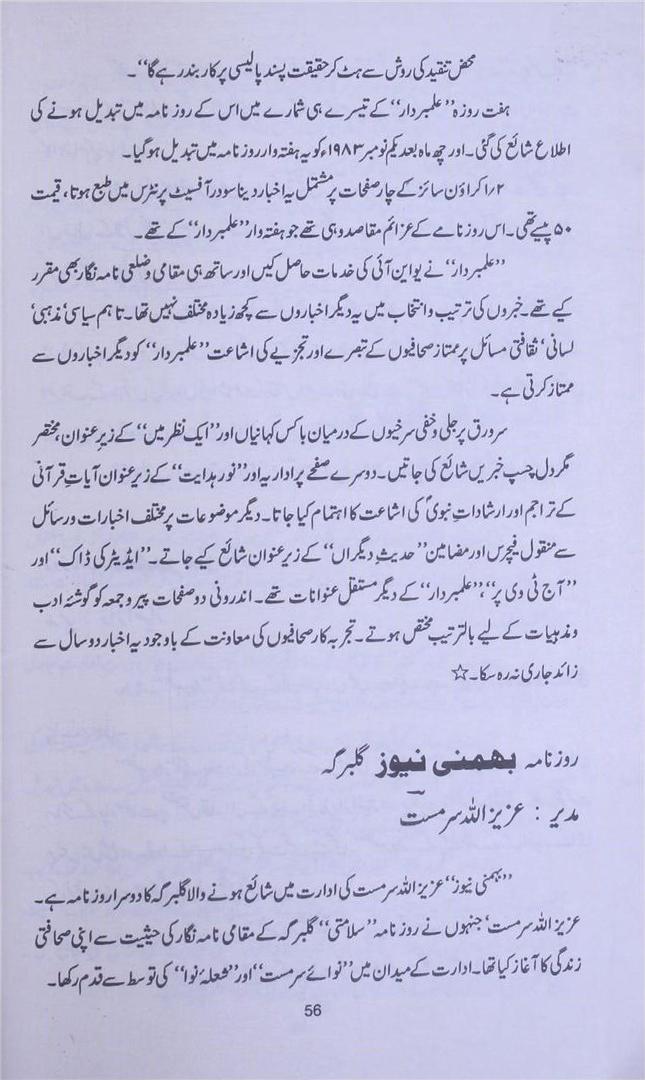 محض تنقید کی روش سے ہٹ کر حقیقت پسند پالیسی پر کاربند رہے گا‘‘۔
ہفت روزہ ’’علمبردار‘‘ کے تیسرے ہی شمارے میں اس کے روزنامہ میں تبدیل ہونے کی
اطلاع شائع کی گئی۔ اور چھ ماہ بعد یکم نومبر ۱۹۸۳ء کو یہ ہفتہ وار روزنامہ میں تبدیل ہو گیا۔
۱/۲ کراؤن سائز کے چار صفحات پر مشتمل یہ اخبار دیناسودر آفسیٹ پرنٹرس میں طبع ہوتا، قیمت
۵۰ پیسے تھی۔ اس روزنامے کے عزائم مقاصد وہی تھے جو ہفتہ وار ’’علمبردار‘‘ کے تھے۔
’’علمبردار‘‘ نے یو این آئی کی خدمات حاصل کیں اور ساتھ ہی مقامی و ضلعی نامہ نگار بھی مقرر
کیے تھے۔ خبروں کی ترتیب و انتخاب میں یہ دیگر اخباروں سے کچھ زیادہ مختلف نہیں تھا۔ تاہم سیاسی‘ مذہبی‘
لسانی‘ ثقافتی مسائل پر ممتاز صحافیوں کے تبصرے اور تجزیے کی اشاعت ’’علمبردار‘‘ کو دیگر اخباروں سے
ممتاز کرتی ہے۔
سرورق پر جلی و خفی سرخیوں کے درمیان باکس کہانیاں اور ’’ایک نظر میں‘‘ کے زیر عنوان، مختصر
مگر دل چسپ خبریں شائع کی جاتیں۔ دوسرے صفحے پر اداریہ اور ’’نور ہدایت‘‘ کے زیر عنوان آیاتِ قرآنی
کے تراجم اور ارشاداتِ نبویؐ کی اشاعت کا اہتمام کیا جاتا۔ دیگر موضوعات پر مختلف اخبارات و رسائل
سے منقول فیچرس اور مضامین ’’حدیثِ دیگراں‘‘ کے زیر عنوان شائع کیے جاتے۔ ’’ایڈیٹر کی ڈاک‘‘ اور
’’آج ٹی وی پر‘‘، ’’علمبردار‘‘ کے دیگر مستقل عنوانات تھے۔ اندرونی دو صفحات پیر و جمعہ کو گوشۂ ادب
و مذہبیات کے لیے بالترتیب مختص ہوتے۔ تجربہ کار صحافیوں کی معاونت کے باوجود یہ اخبار دو سال سے
زائد جاری نہ رہ سکا۔☆
روزنامہ بہمنی نیوز گلبرگہ
مدیر : عزیز اللہ سرمست
’’بہمنی نیوز‘‘ عزیز اللہ سرمست کی ادارت میں شائع ہونے والا گلبرگہ کا دوسرا روزنامہ ہے۔
عزیز اللہ سرمست‘ جنہوں نے روزنامہ ’’سلامتی‘‘ گلبرگہ کے مقامی نامہ نگار کی حیثیت سے اپنی صحافتی
زندگی کا آغاز کیا تھا۔ ادارت کے میدان میں ’’نوائے سرمست‘‘ اور ’’شعلۂ نوا‘‘ کی توسط سے قدم رکھا۔
56